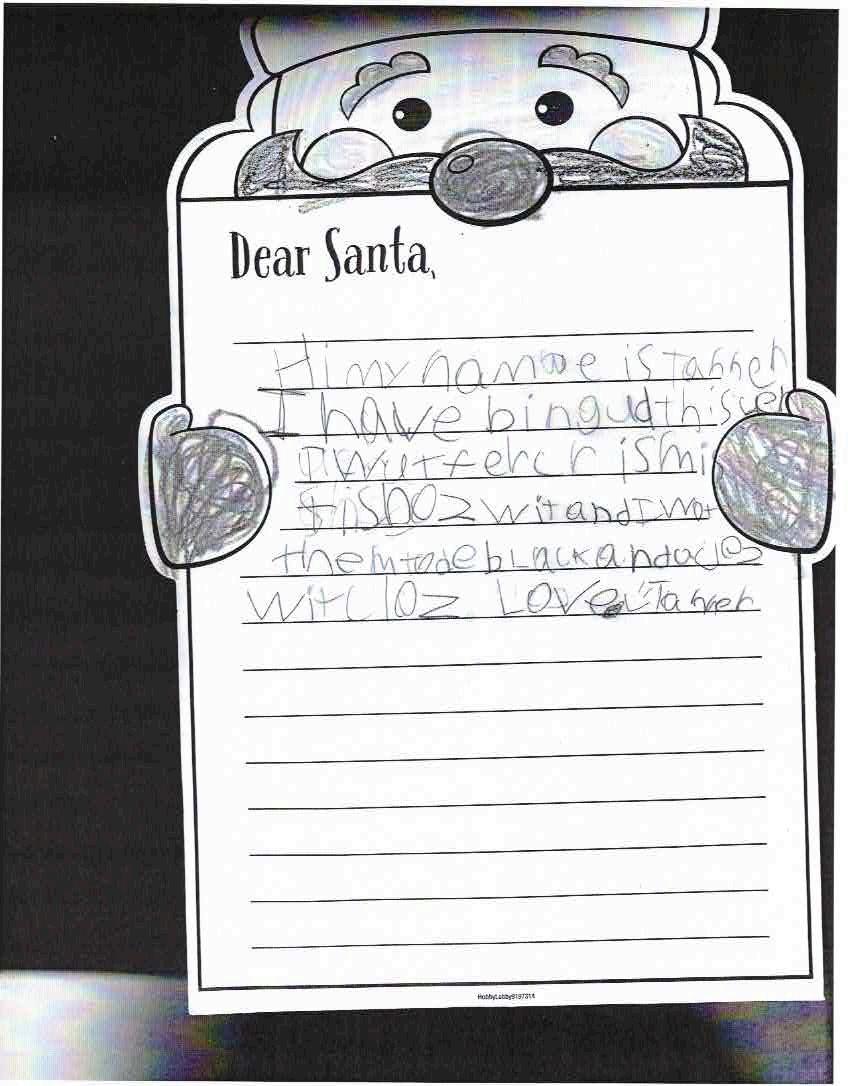 Dear Santa,
Hi my name is Tanner
I have bin gud this yer
wut fer cr is mi
wit and I wot
them to de black and
wit cloz Love Tanner
HobbyLobby9197314